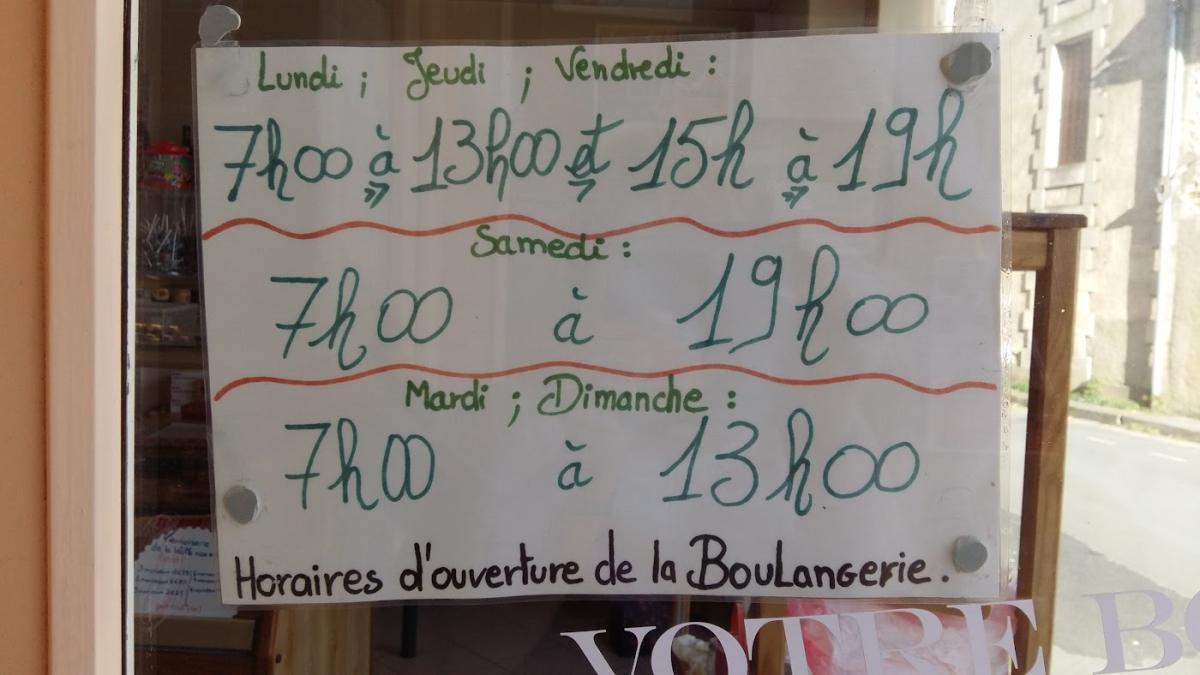 Lundi ; Jeudi ; Vendredi :
7h00 à 13h00 et 15h à 19h
Samedi :
7h00 à 19h00
Mardi ; Dimanche :
7h00 à 13h00
Horaires d'ouverture de la BouLangerie.
VOTRE